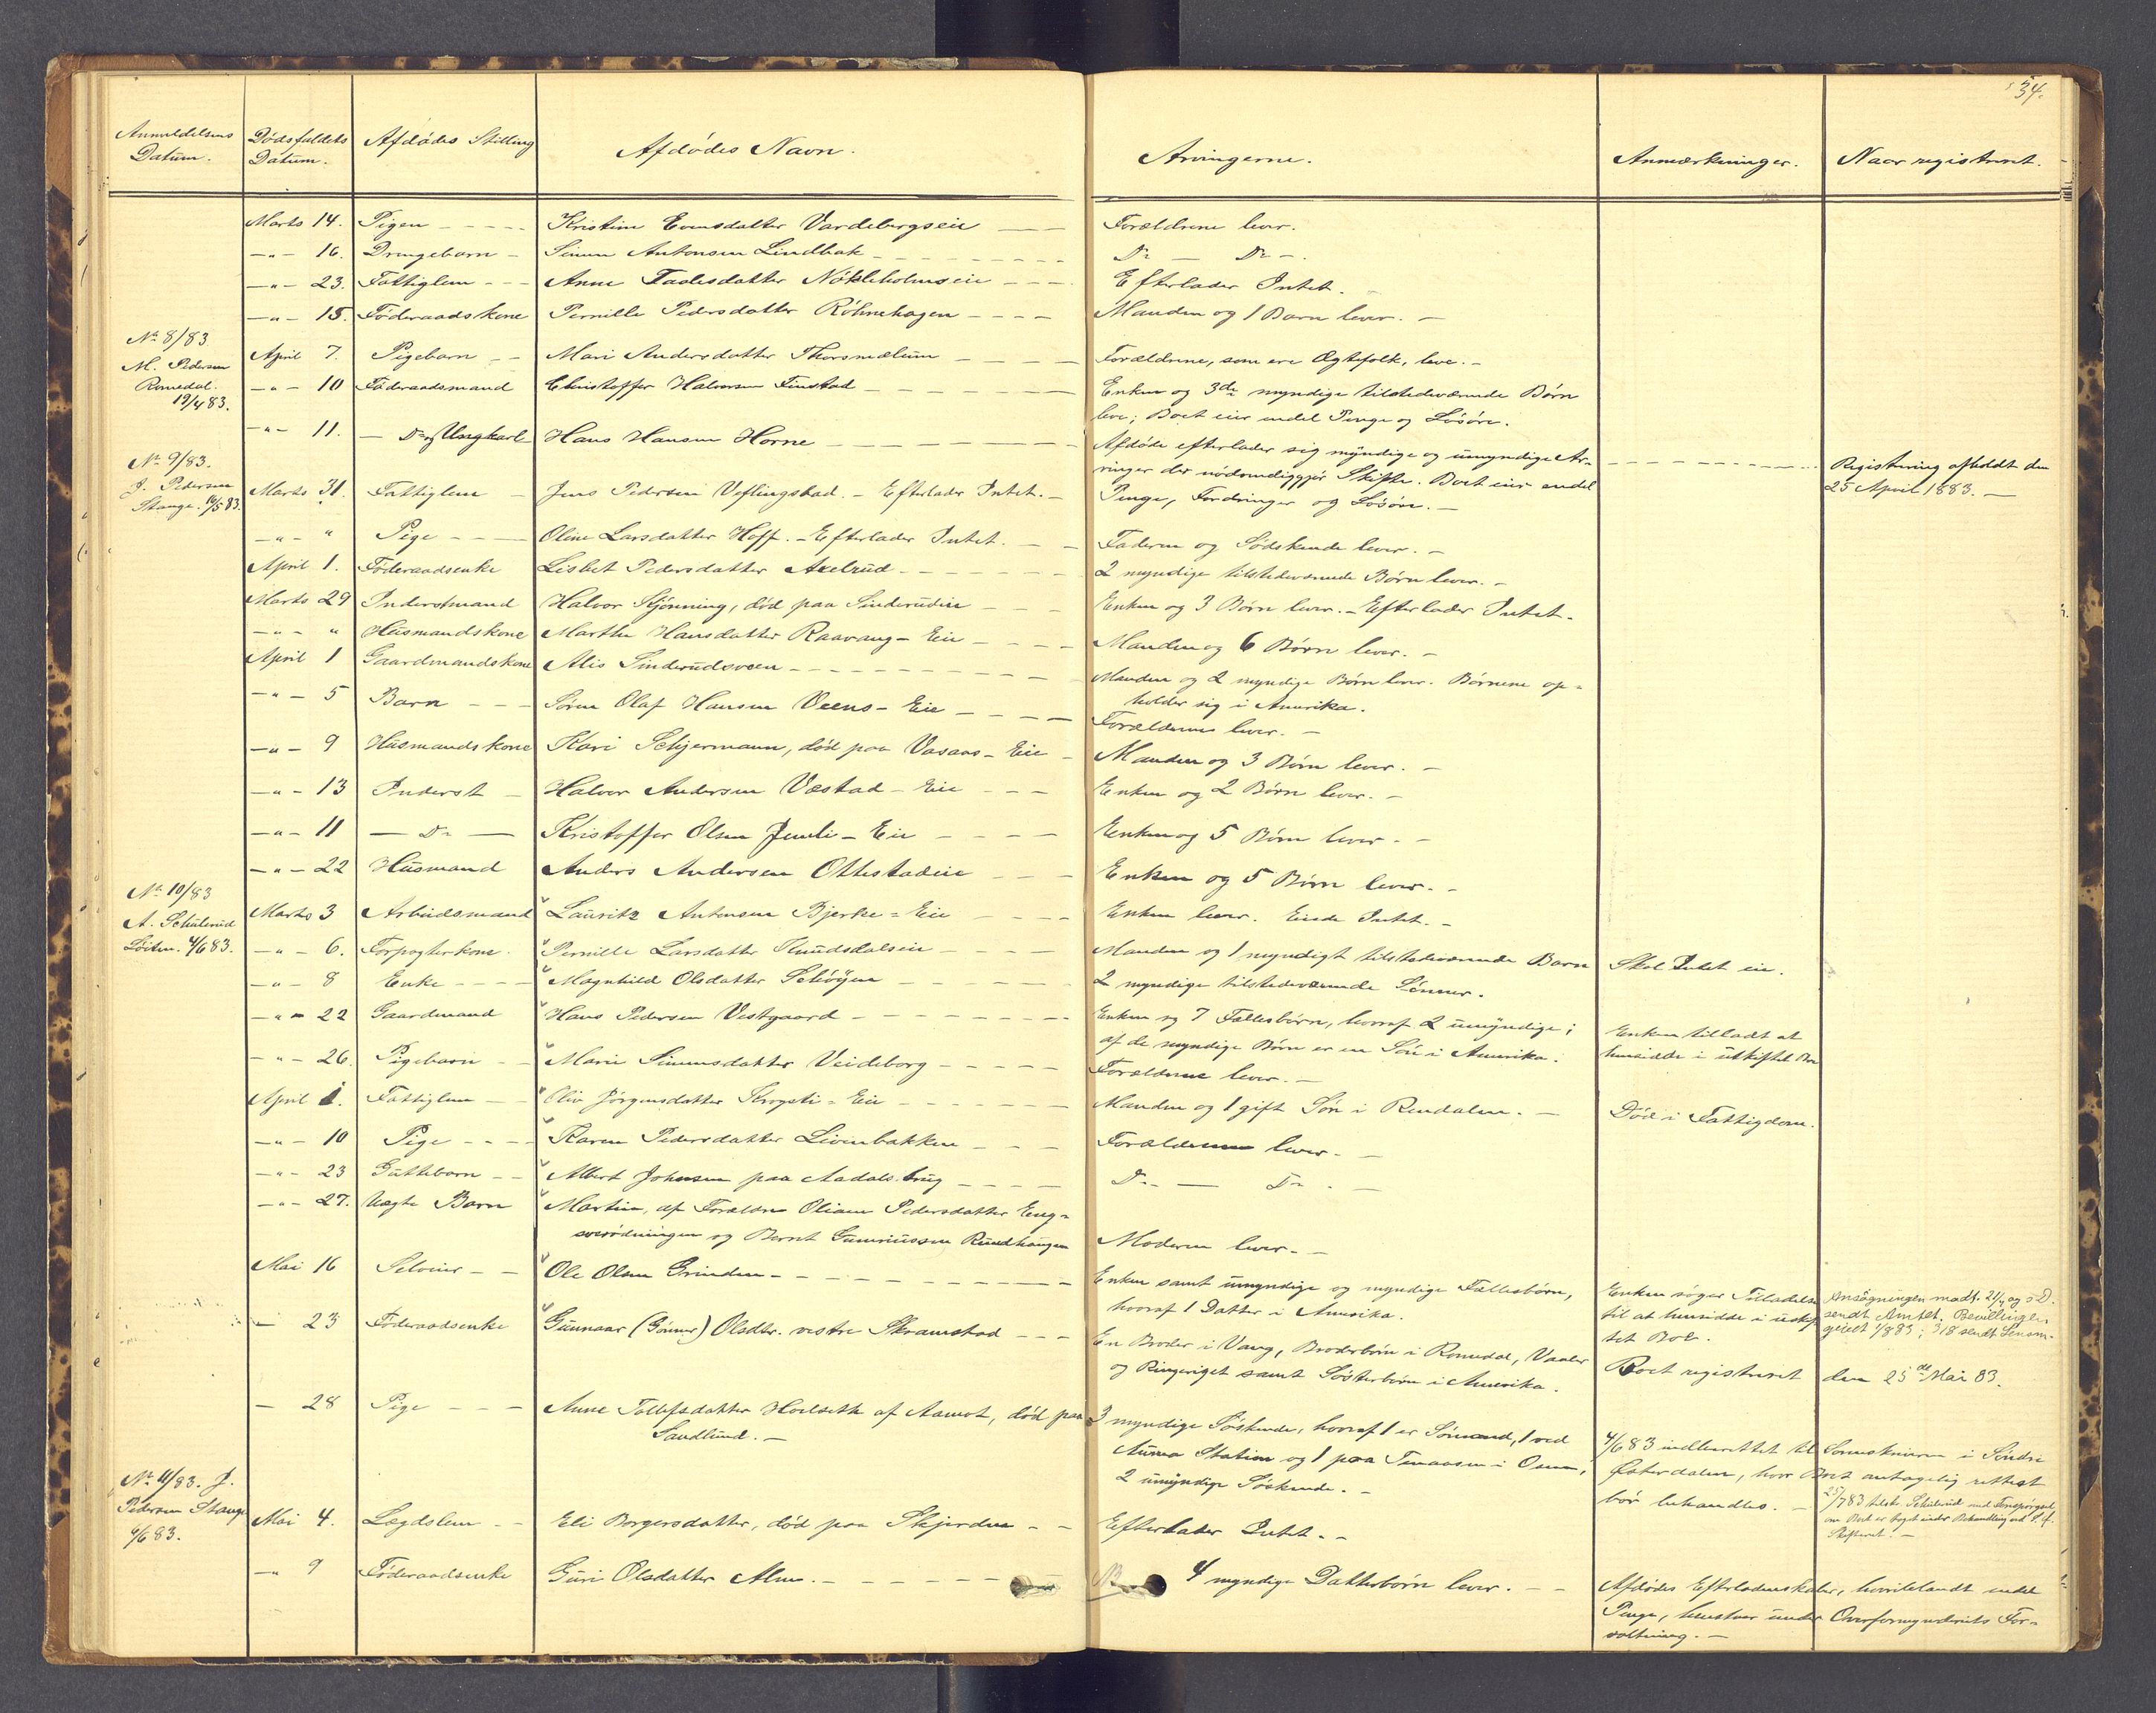 34.
Anmeldelsens Datum. Dødsfaldets Datum. Afdødes Stilling Afdødes Navn. Arvingerne. Anmærkninger. Naar registreret.
Marts 14. Pigen Kristine Evensdatter Vardebergseie Forældrene lever.
-"- 16. Drengebarn Simen Antonsen Lindbak Do Do
-"- 23. Fattiglem Anne Paalsdatter Nökleholmseie Efterlader Intet.
-"- 15. Föderaadskone Pernille Pedersdatter Röhnehagen Manden og 1 Barn lever.
No 8/83
M. Pedersen
Romedal.
19/4 83.
April 7. Pigebarn Mari Andersdatter Thorsmælum Forældrene, som ere Ægtefolk, leve.
-"- 10 Föderaadsmand Christoffer Halvorsen Finstad Enken og 3de myndige tilstedeværende Børn
leve; Boet eier endel Penge og Løsøre.
-"- 11. Do og Ungkarl Hans Hansen Horne Afdøde efterlader sig myndige og umyndige Ar-
vinger der nødvendiggjør Skifte. Boet eier endel
Penge, Fordringer og Løsøre. Registrering afholdt den
25 April 1883.
No 9/83.
J. Pedersen
Stange. 16/5 83.
Marts 31. Fattiglem Jens Pedersen Veflingstad. - Efterlader Intet.
-"- " Pige Oline Larsdatter Hoff. - Efterlader Intet. Faderen og Sødskende lever.
April 1. Föderaadsenke Lisbet Pedersdatter Axelrud 2 myndige tilstedeværende Børn lever.
Marts 29 Inderstmand Halvor Stjönning, död paa Sinderudeie Enken og 3 Børn lever. - Efterlader Intet.
-"- " Husmandskone Marthe Hansdatter Raavang-Eie Manden og 6 Børn lever.
April 1 Gaardmandskone Alis Sinderudsveen Manden og 2 myndige Børn lever. Børnene op-
holder sig i Amerika.
-"- 5 Barn Søren Olaf Hansen Veens-Eie Forældrene lever.
-"- 9 Husmandskone Kari Schjermann, död paa Vasaas-Eie Manden og 3 Børn lever.
-"- 13 Inderst Halvor Andersen Væstad-Eie Enken og 2 Børn lever.
-"- 11 Do Kristoffer Olsen Jemli-Eie Enken og 5 Børn lever.
-"- 22 Husmand Anders Andersen Ottestadeie Enken og 5 Børn lever.
No 10/83
A. Schulerud
Löiten. 4/6 83.
Marts 3 Arbeidsmand Lauritz Antonsen Bjerke-Eie Enken lever. Eiede Intet.
-"- 6. Forpagterkone. Pernille Larsdatter Knudsdalseie Manden og 1 myndigt tilstedeværende Barn Skal Intet eie.
-"- 8 Enke Magnhild Olsdatter Schöyen 2 myndige tilstedeværende Sønner.
-"- 22 Gaardmand Hans Pedersen Vestgaard Enken og 7 Fællesbørn, hvoraf 2 umyndige;
af de myndige Børn er en Søn i Amerika. Enken tilladt at
hensidde i uskiftet Bo
-"- 26. Pigebarn Marie Simensdatter Veideborg Forældrene lever.
April 1. Fattiglem Oliv Jörgensdatter Skogsti-Eie Manden og 1 gift Søn i Rendalen. Död i Fattigdom.
-"- 10 Pige Karen Pedersdatter Livenbakken Forældrene lever.
-"- 23 Guttebarn Albert Johnsen paa Aadals brug Do Do
-"- 27. Uægte Barn Martin, af Forældre Oliane Pedersdatter Eng-
sverödningen og Bernt Gunniussen Rundhaugen Moderen lever.
Mai 16 Selveier Ole Olsen Grinden Enken samt umyndige og myndige Fællesbørn,
hvoraf 1 Datter i Amerika. Enken søger Tilladelse
til at hensidde i uskif-
tet Bo. Ansögningen modt. 21/7 og s. D.
sendt Amtet. Bevillingen
1/8 83; 3/8 sendt Lensm.
- 23 Föderaadsenke Gunnaar (Gönner) Olsdtr. vestre Skramstad En Broder i Vang, Broderbørn i Romedal, Vaaler
og Ringeriget samt Søsterbørn i Amerika. Boet registreret den 25de Mai 83.
- 28 Pige Anne Tollefsdatter Hoelseth af Aamot, död paa
Sandlund. 3 myndige Søskende, hvoraf 1 er Sømand, 1 ved
Auma Station og 1 paa i Osen,
2 umyndige Søskende. 4/6 83 indberettet til Sorenskriveren i Söndre
Østerdalen, hvor Boet antagelig rettest
bör behandles. 25/7 83 tilskr. Schulerud med Forespörgsel
om Boet er taget under Behandling ved S.
Skifteret.
No 11/83. J.
Pedersen Stange
6/6 83.
Mai 4. Lægdslem Eli Borgersdatter, död paa Skjerden Efterlader Intet.
-"- 9 Föderaadsenke Guri Olsdatter Alm. 4 myndige Datterbørn lever. Afdødes Efterladenskaber, hvoriblandt endel
Penge, henstaar under Overformynderiets For-
valtning.